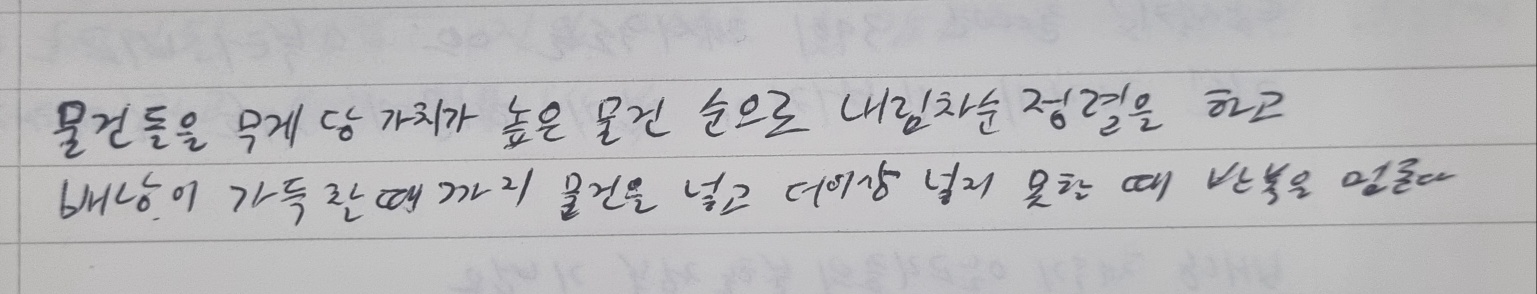 물건들을 무게 당 가치가 높은 물건 순으로 내림차순 정렬을 하고
배낭이 가득 찰 때 까지 물건을 넣고 더이상 넣지 못할 때 반복을 멈춘다